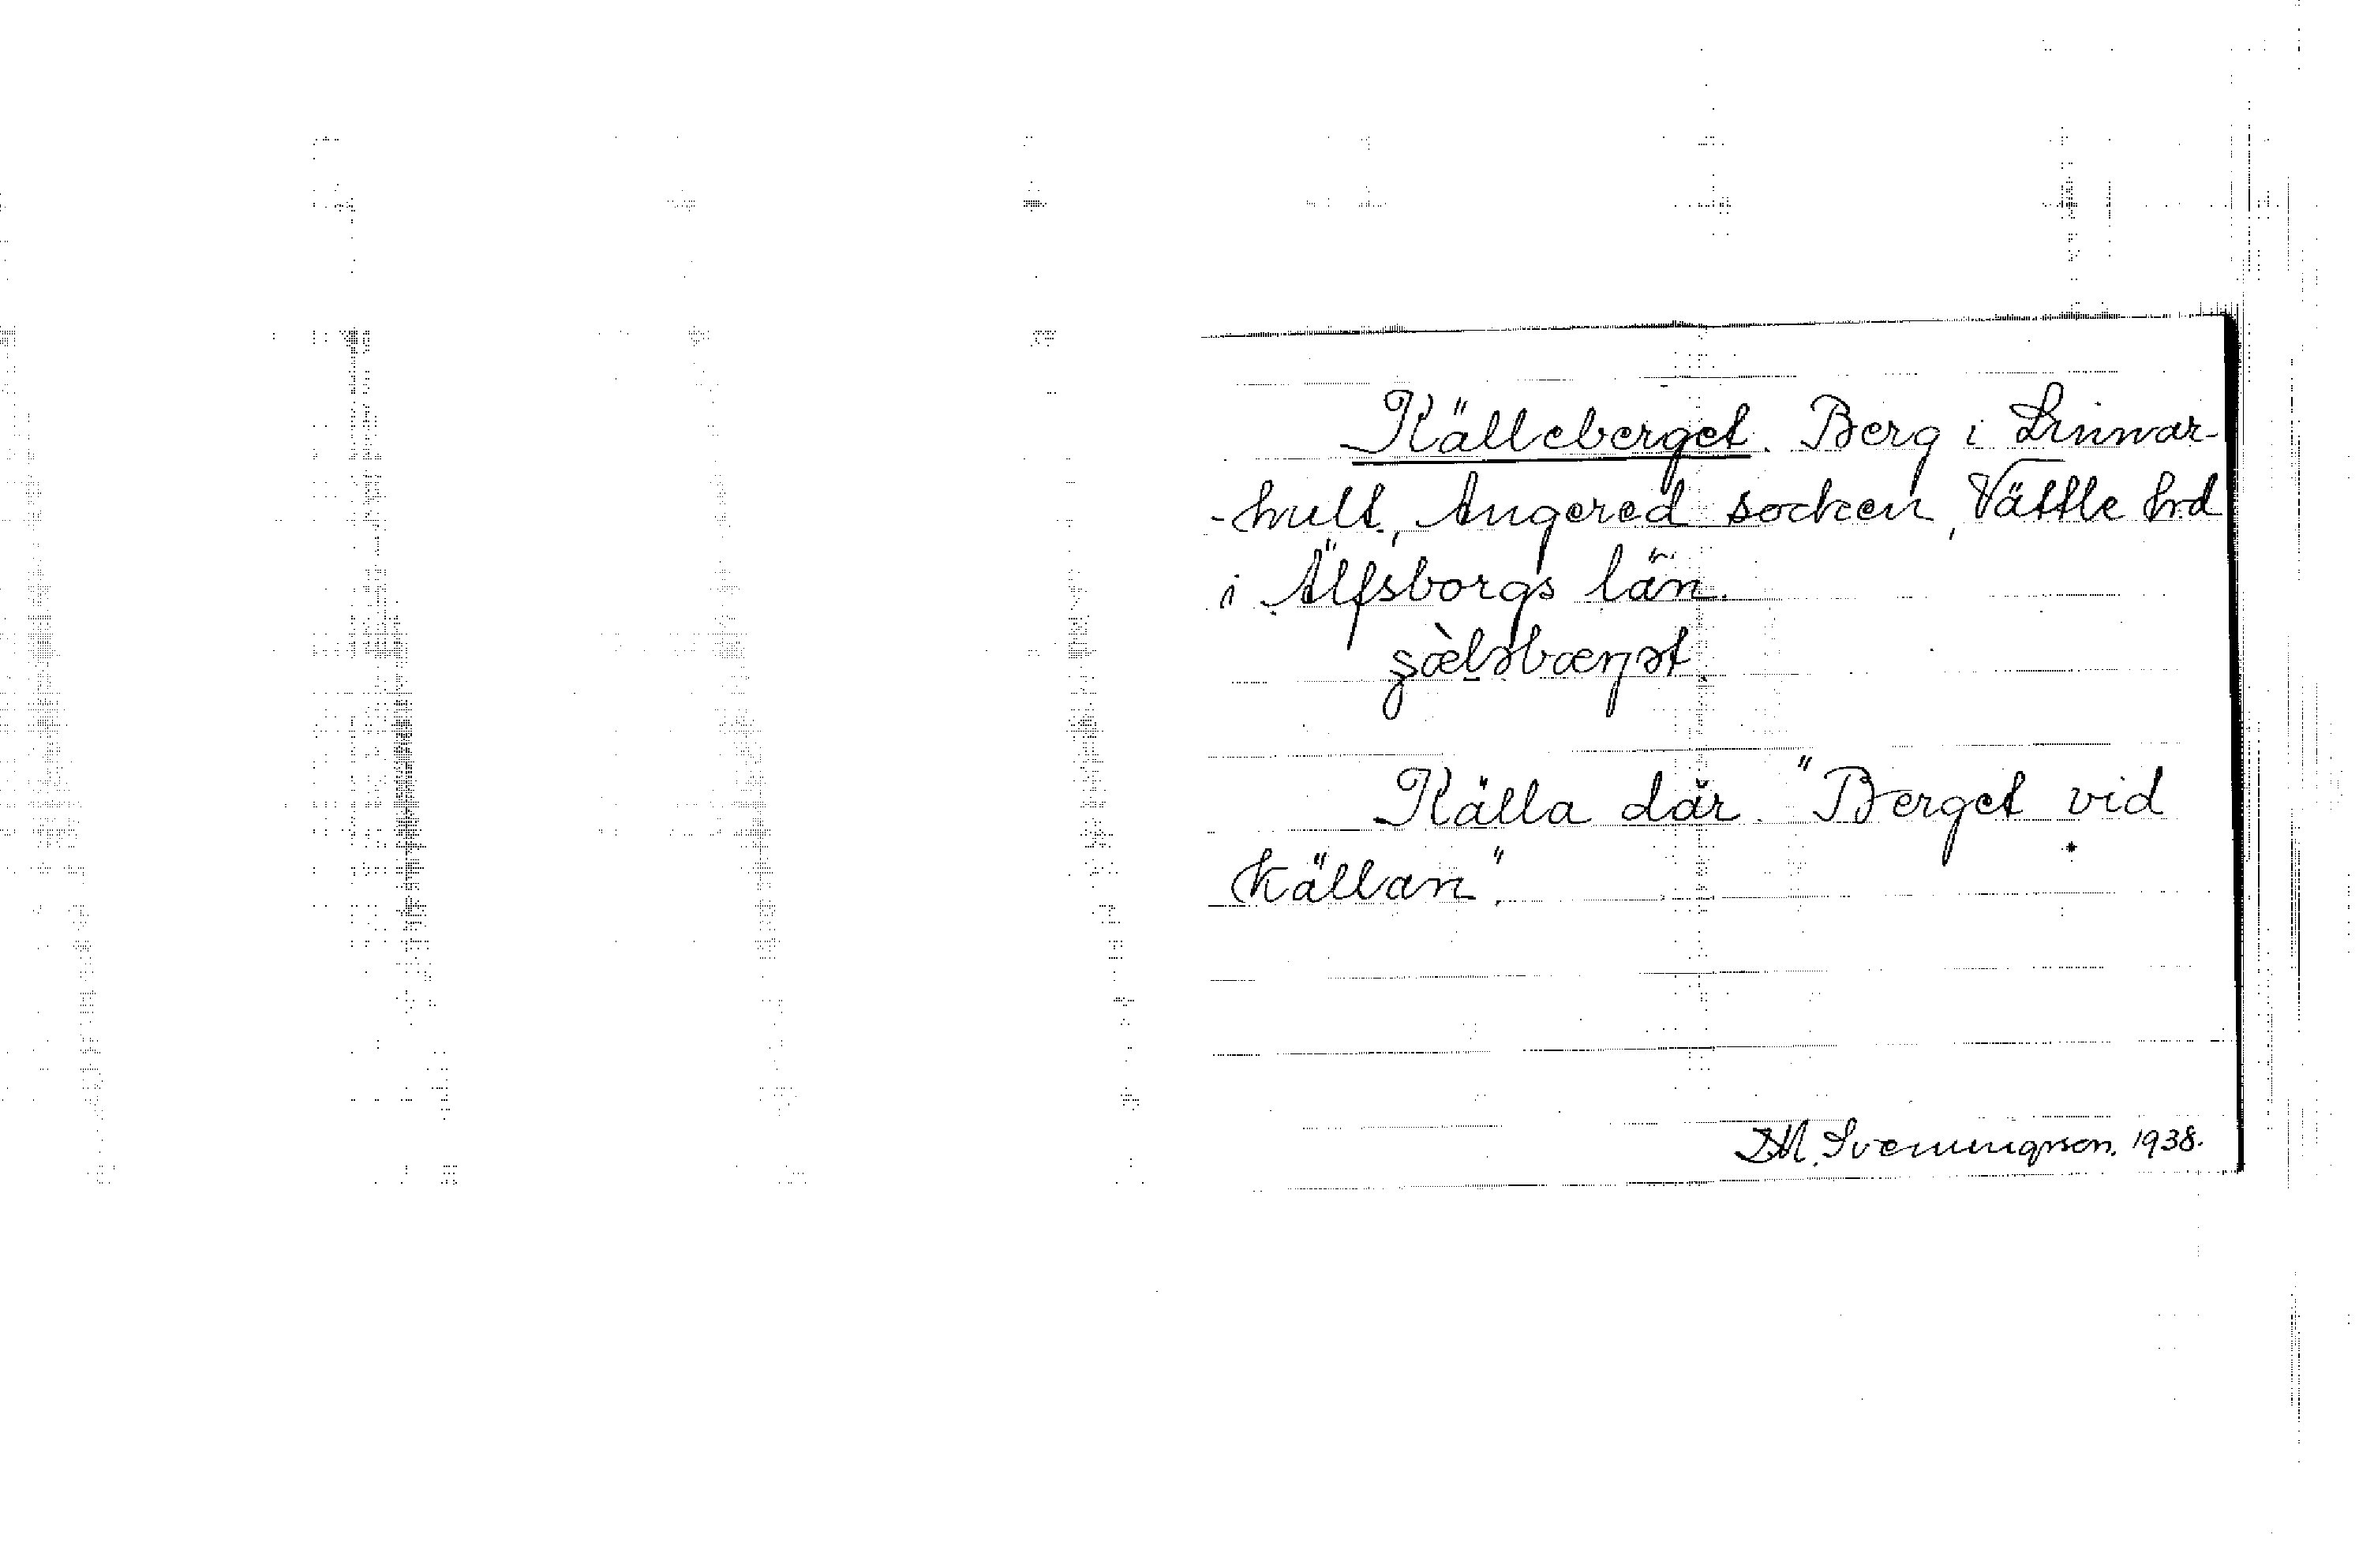 Källeberget. Berg i Linnar-
-hult, Angered socken, Vättle hrd
i Älfsborgs län.
Källa där. "Berget vid
källan".
D.M. Svenningson. 1938.